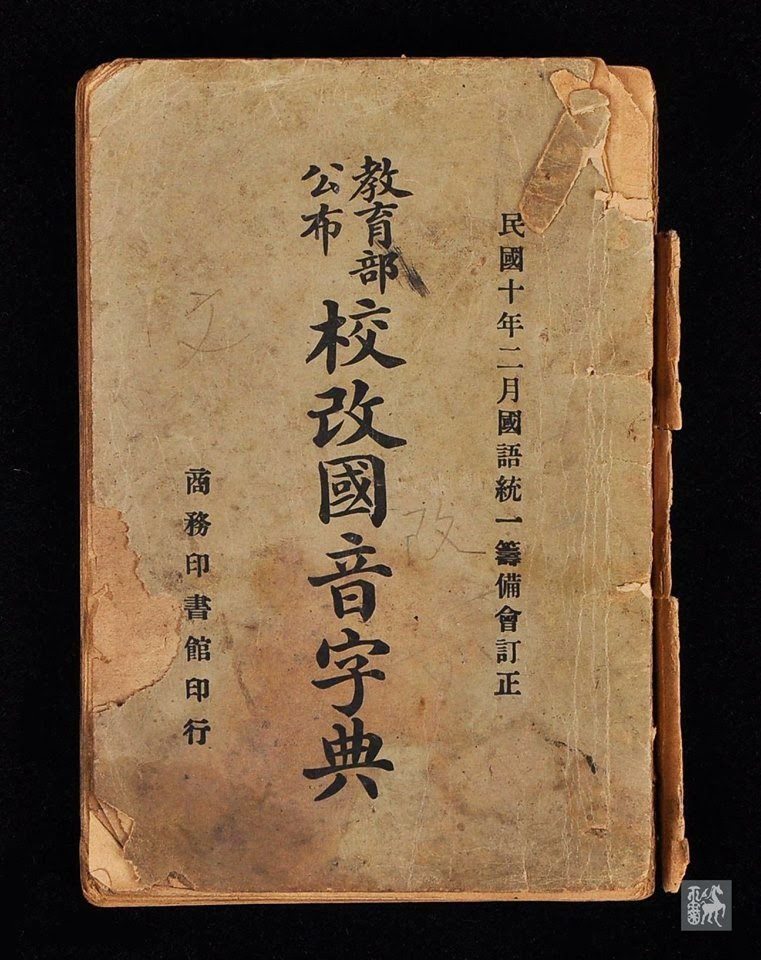 民國十年二月國語統一籌備會訂正
教育部
公布
校改國音字典
商務印書館印行
改